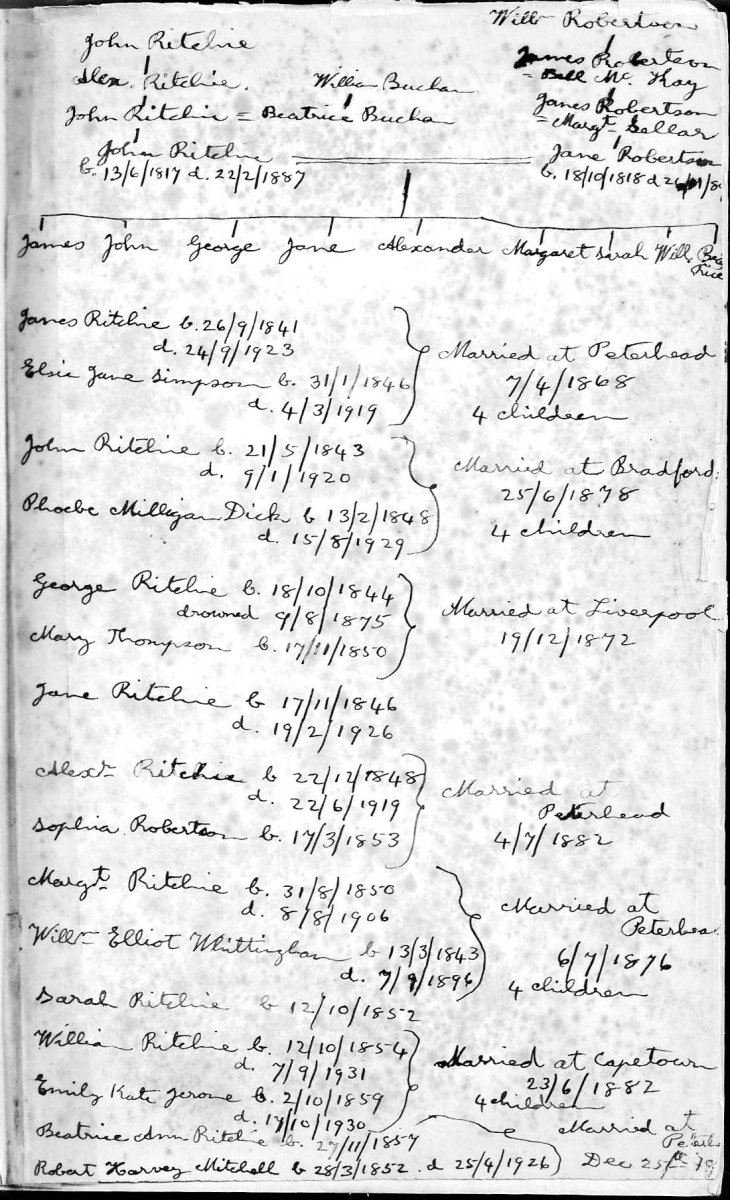 Willm Robertson
John Ritchie
James Robertson
Alex. Ritchie. William Buchan = Bell Mc Kay
John Ritchie = Beatrice Buchan James Robertson
= Margt Sellar
John Ritchie Jane Robertson
b. 13/6/1817 d. 22/2/1887 b. 18/10/1818 d
James John George Jane Alexander Margaret Sarah Will. Bea
trice
James Ritchie b. 26/9/1841
d. 24/9/1923 Married at Peterhead
Elsie Jane Simpson b. 31/1/1846 7/4/1868
d. 4/3/1919 4 children
John Ritchie b. 21/5/1843
d. 9/1/1920 Married at Bradford.
Phoebe Milligan Dick b 13/2/1848 25/6/1878
d. 15/8/1929 4 children
George Ritchie b. 18/10/1844
drowned 9/8/1875 Married at Liverpool
Mary Thompson b. 17/11/1850 19/12/1872
Jane Ritchie b 17/11/1846
d. 19/2/1926
Alexr Ritchie b 22/12/1848
d. 22/6/1919 Married at
Peterhead
Sophia Robertson b. 17/3/1853 4/7/1882
Margt Ritchie b. 31/8/1850
d. 8/8/1906 Married at
Peterhea
Willm Elliot Whittingham b 13/3/1843 6/7/1876
d. 7/9/1896 4 children
Sarah Ritchie b 12/10/1852
William Ritchie b. 12/10/1854
d. 7/9/1931 Married at Capetown
Emily Kate Jerome b. 2/10/1859 23/6/1882
d. 17/10/1930 4 children
Beatrice Ann Ritchie b. 27/11/1857 Married at
Robert Harvey Mitchell b 28/3/1852 d 25/4/1926 Dec 25th